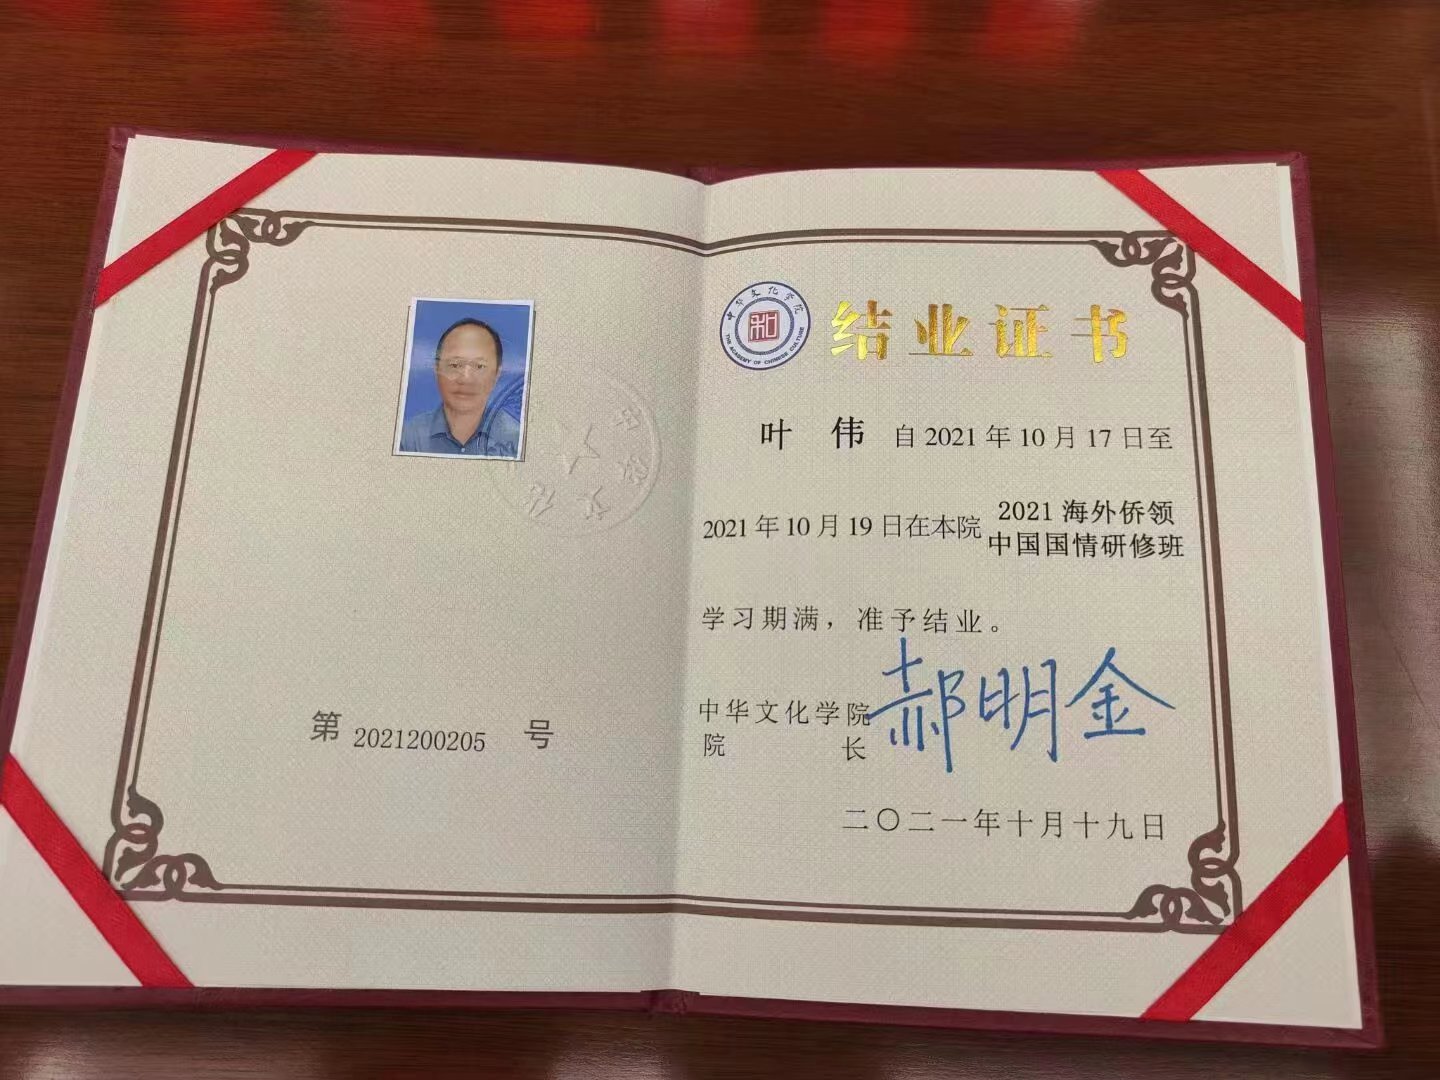 第 2021200205 号
中华文化学院
THE ACADEMY OF CHINESE CULTURE
和
结业证书
叶 伟 自 2021 年 10 月 17 日至
2021 年 10 月 19 日在本院 2021 海外侨领
中国国情研修班
学习期满，准予结业。
中华文化学院
院 长
郝明金
二〇二一年十月十九日